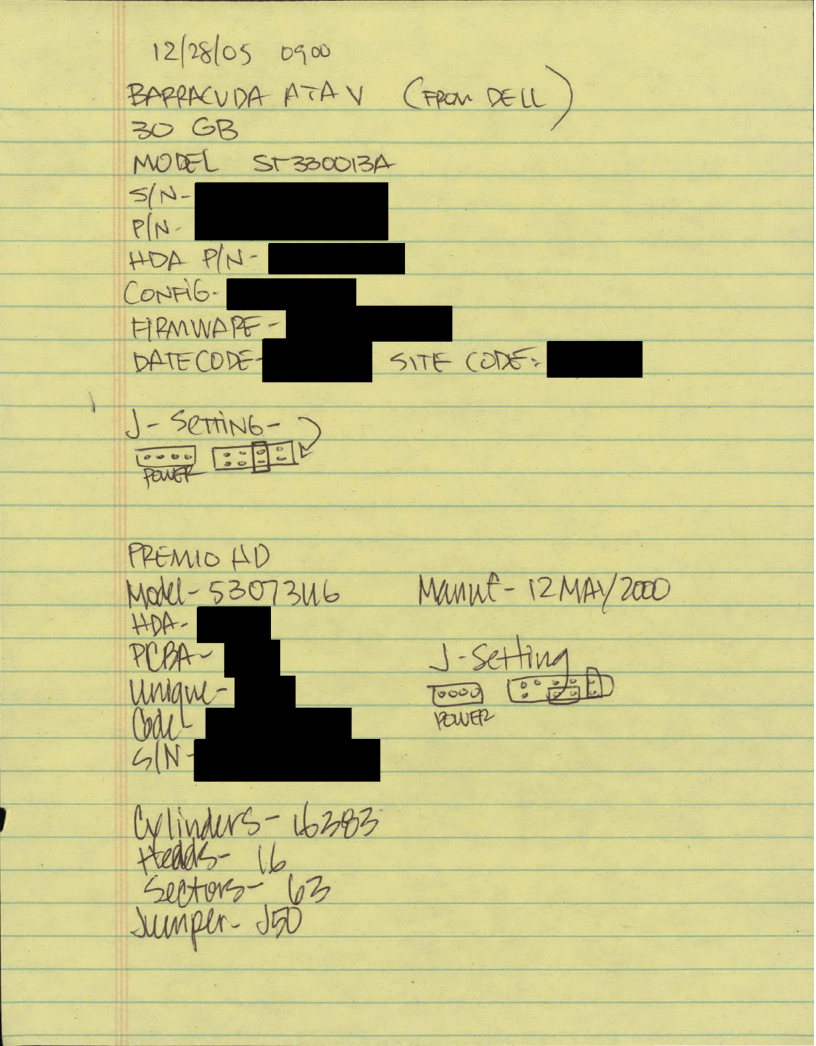 12/28/05 0900
BARRACUDA ATA V (FROM DELL)
30 GB
MODEL ST330013A
S/N-
P/N-
HDA P/N-
CONFIG-
FIRMWARE-
DATECODE- SITE CODE:
J-SETTING-
POWER
PREMIO HD
Model- 53073U6 Manuf- 12MAY/2000
HDA-
PCBA-
J-Setting
Unique-
POWER
Code-
S/N-
Cylinders- 16383
Heads- 16
Sectors- 63
Jumper- J50